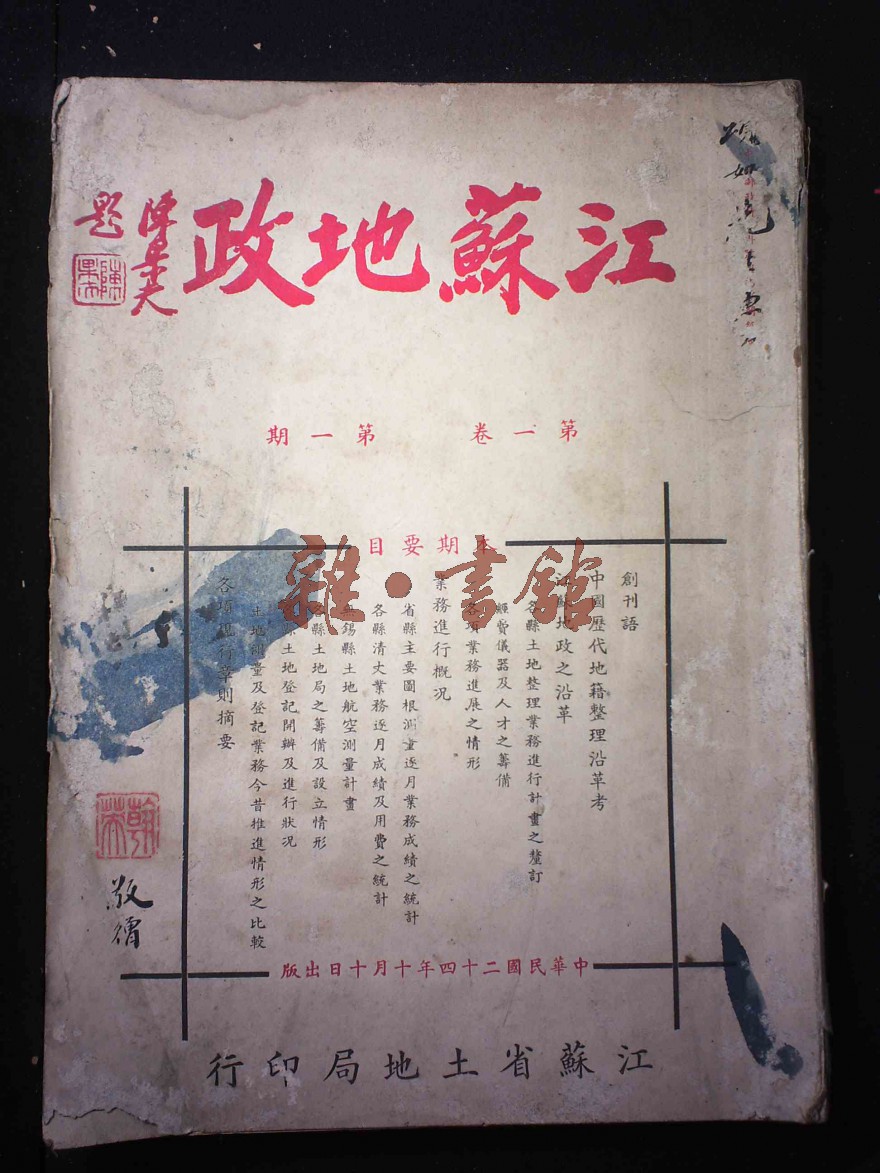 江蘇地政
陳果夫
題
陳果夫
第一卷 第一期
本期要目
創刊語
中國歷代地籍整理沿革考
江蘇地政之沿革
各縣土地整理業務進行計畫之釐訂
經費儀器及人才之籌備
各項業務進展之情形
業務進行概況
省縣主要圖根測量逐月業務成績之統計
各縣清丈業務逐月成績及用費之統計
無錫縣土地航空測量計畫
各縣土地局之籌備及設立情形
各縣土地登記開辦及進行狀況
土地測量及登記業務今昔推進情形之比較
各項現行章則摘要
中華民國二十四年十月十日出版
江蘇省土地局印行
敬贈
雜·書館